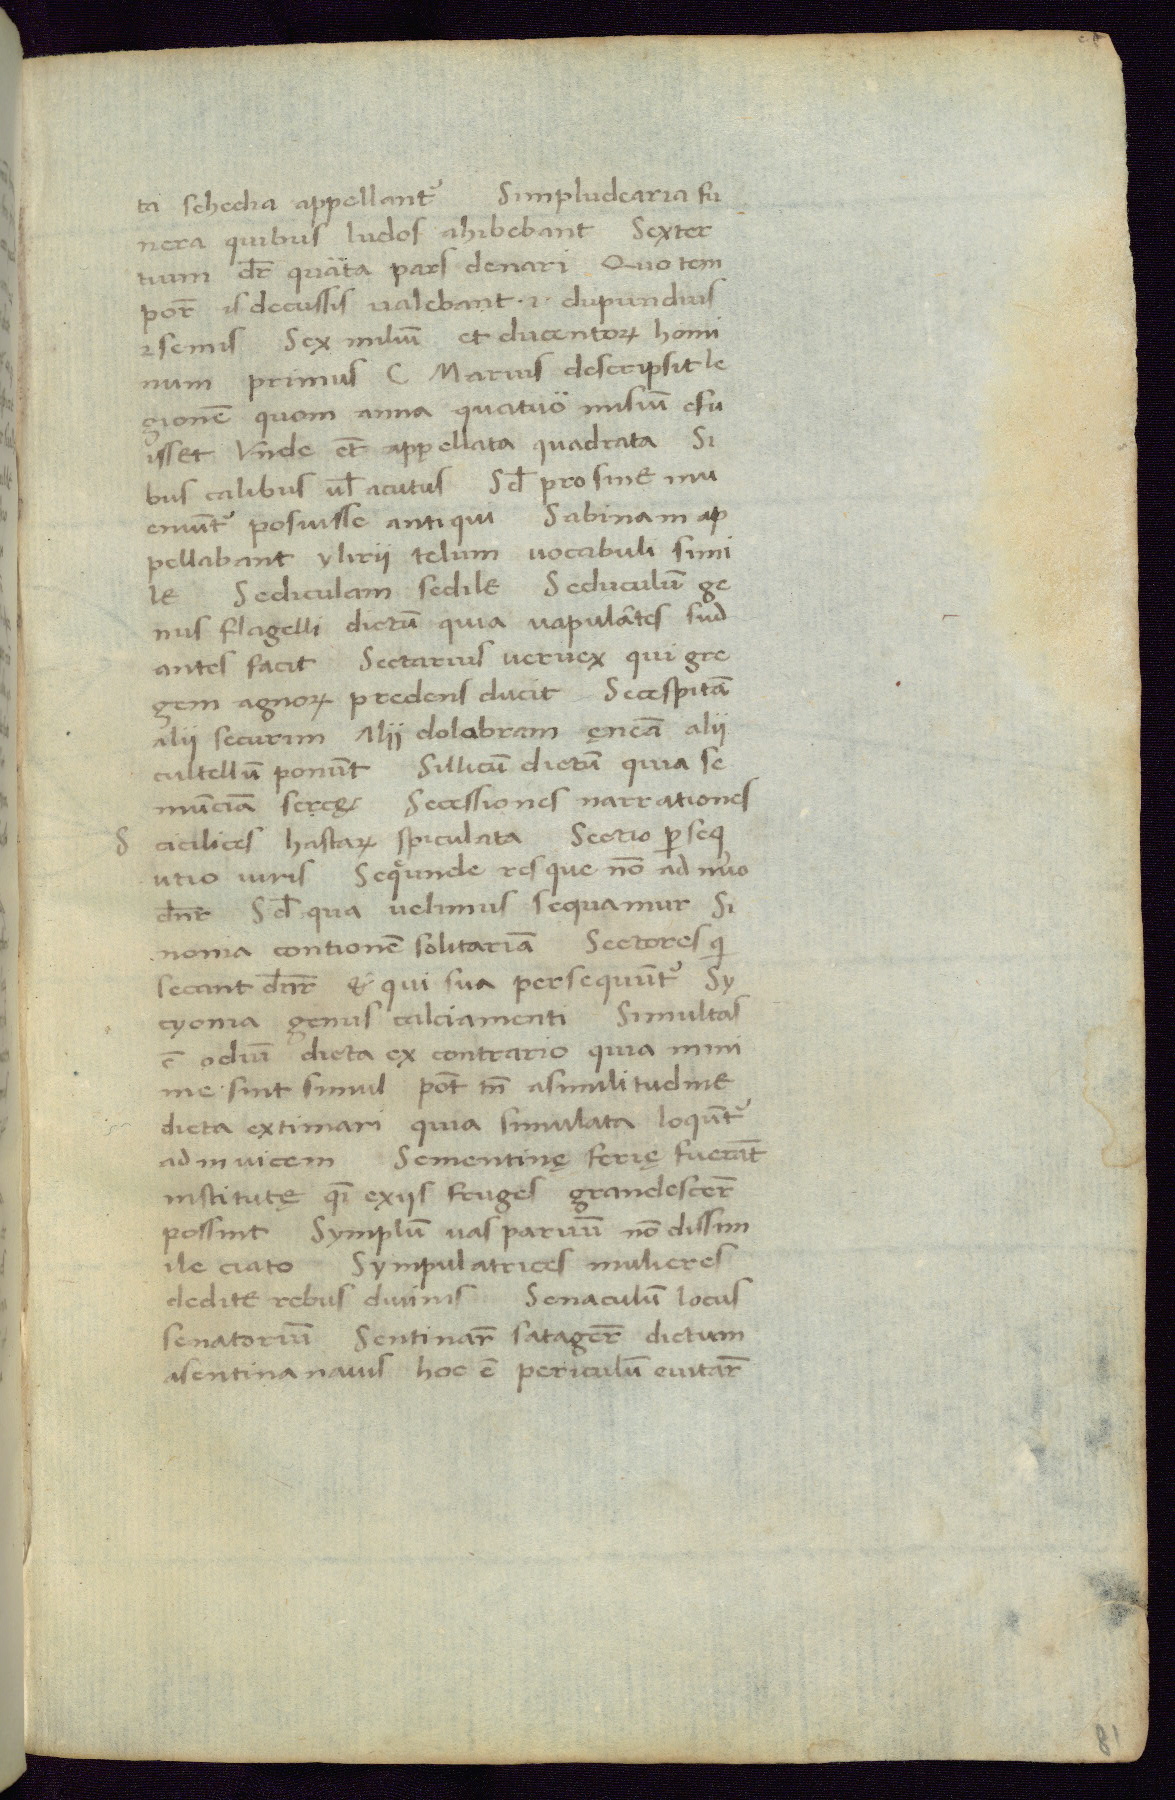 ta schedia appellant᷑ Simpludearia fu
nera quibus ludos ahibebant Sexter
tium dr̄ quãta pars denari Quo tem
por̄ is decussis ualebant · 2 · dupundius
2 semis Sex miliū et ducentoꝝ homi
num primus C Marius descripsit le
gionē quom anna quatuö miliū efu
isset Vnde et̄ appellata quadrata Si
bus calibus ul̄ acutus Sd̄ pro sine inu
eniūt᷑ posuisse antiqui Sabinam ap
pellabant ylirij telum uocabuli simi
le Sediculam sedile Seduculū ge
nus flagelli dictū quia uapulãtes sud
antes facit Sectarius ueruex qui gre
gem agnoꝝ predens ducit Secespitā
alij securim Alij dolabram ęneā alij
cultellū ponūt Sillicū dictū quia se
munciā sereę Secessiones narrationes
S cicilices hastaꝝ spiculata Sectio ꝑseq
utio iuris Sequunde res que nō ad nuo
dn̄r Sd̄ qua uelimus sequamur Si
nonia contionē solitariā Sectores q̄
secant dn̄r & qui sua persequūt᷑ Sy
cyonia genus calciamenti Simultas
ē odiū dicta ex contrario quia mini
me sint simul pot̄ tn̄ asimilitudine
dicta extimari quia simulata loqūt᷑
ad inuicem Sementinę ferię fuerāt
institutę qī exijs fruges grandescer̄
possint Symplū uas paruū nō dissim
ile ciato Sympulatrices mulieres
dedite rebus diuinis Senaculū locus
senatoriū Sentinar̄ satager̄ dictum
asentina nauis hoc ē periculū euitar̄
81